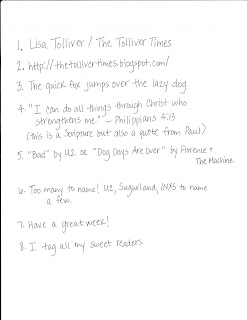 1. Lisa Tolliver / The Tolliver Times
2. http://thetollivertimes.blogspot.com/
3. The quick fox jumps over the lazy dog.
4. "I can do all things through Christ who
strengthens me." - Philippians 4:13
(this is a Scripture but also a quote from Paul)
5. "Bad" by U2 or "Dog Days Are Over" by Florence +
The Machine
6. Too many to name! U2, Sugarland, INXS to name
a few.
7. Have a great week!
8. I tag all my sweet readers.